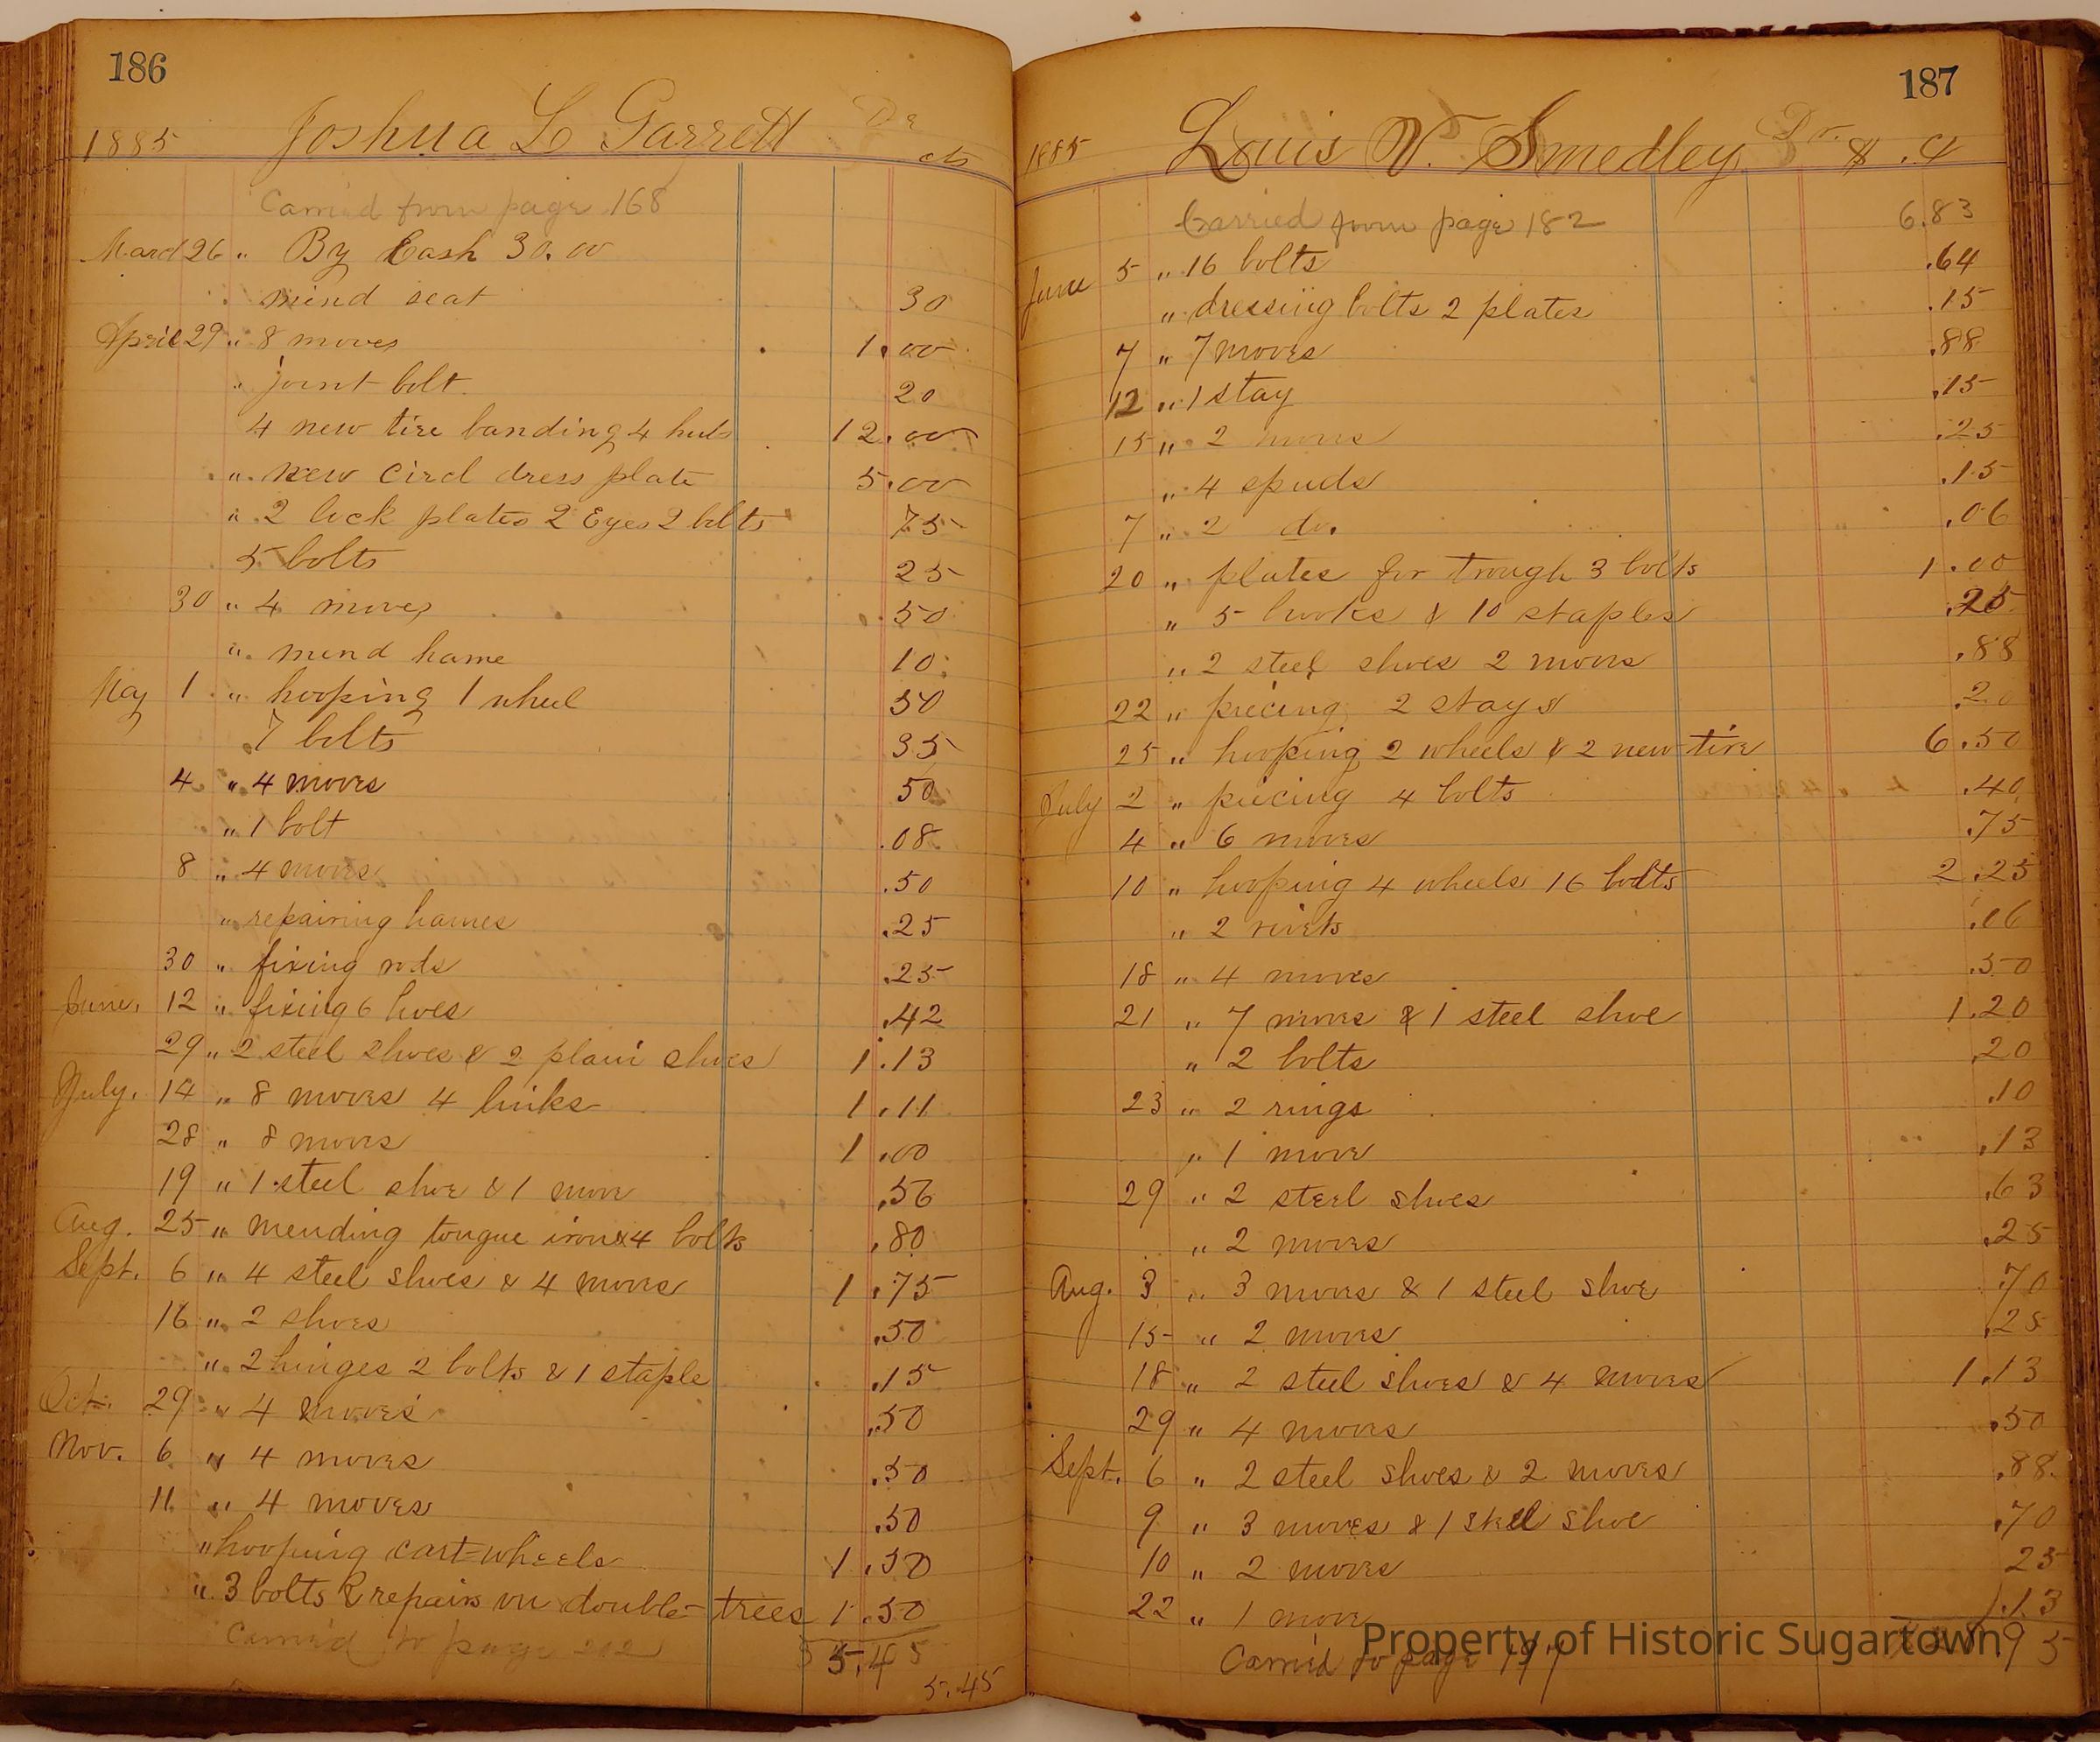 186
1885 Joshua L Garrett Dr cts
Carried from page 168
March 26 " By Cash 30.00
mend seat 30
April 29 " 8 moves 1.00
" joint bolt 20
4 new tire banding 4 hubs 12.00
" new circl dress plate 5.00
" 2 lock plates 2 Eyes 2 bolts 75
5 bolts 25
30 " 4 moves .50
" mend hame 10
May 1 " hooping 1 wheel 50
7 bolts 35
4 " 4 moves 50
" 1 bolt .08
8 " 4 moves .50
" repairing hames .25
30 " fixing rods .25
June. 12 " fixing 6 hoes .42
29 " 2 steel shoes & 2 plain shoes 1.13
July. 14 " 8 moves 4 links 1.11
28 " 8 moves 1.00
19 " 1 steel shoe & 1 move .56
Aug. 25 " mending tongue iron & 4 bolts .80
Sept. 6 " 4 steel shoes & 4 moves 1.75
16 " 2 shoes .50
" 2 hinges 2 bolts & 1 staple .15
Oct. 29 " 4 moves .50
Nov. 6 " 4 moves .50
11 " 4 moves .50
" hooping cart-wheels 1.50
" 3 bolts & repairs on double-trees 1.50
Carried to page 202 35.45
5.45
187
1885 Louis V. Smedley Dr. $ . c
Carried from page 182 6.83
June 5 " 16 bolts .64
" dressing bolts 2 plates .15
7 " 7 moves .88
12 " 1 stay .15
15 " 2 moves .25
" 4 spuds .15
7 " 2 do. .06
20 " plates for trough 3 bolts 1.00
" 5 hooks & 10 staples .25
" 2 steel shoes 2 moves .88
22 " piecing 2 stays .20
25 " hooping 2 wheels & 2 new tire 6.50
July 2 " piecing 4 bolts .40
4 " 6 moves .75
10 " hooping 4 wheels 16 bolts 2.25
" 2 rivets .06
18 " 4 moves .50
21 " 7 moves & 1 steel shoe 1.20
" 2 bolts .20
23 " 2 rings .10
" 1 move .13
29 " 2 steel shoes .63
" 2 moves .25
Aug. 3 " 3 moves & 1 steel shoe .70
15 " 2 moves .25
18 " 2 steel shoes & 4 moves 1.13
29 " 4 moves .50
Sept. 6 " 2 steel shoes & 2 moves .88
9 " 3 moves & 1 steel shoe .70
10 " 2 moves 25
22 " 1 move .13
Carried to page 197
Property of Historic Sugartown